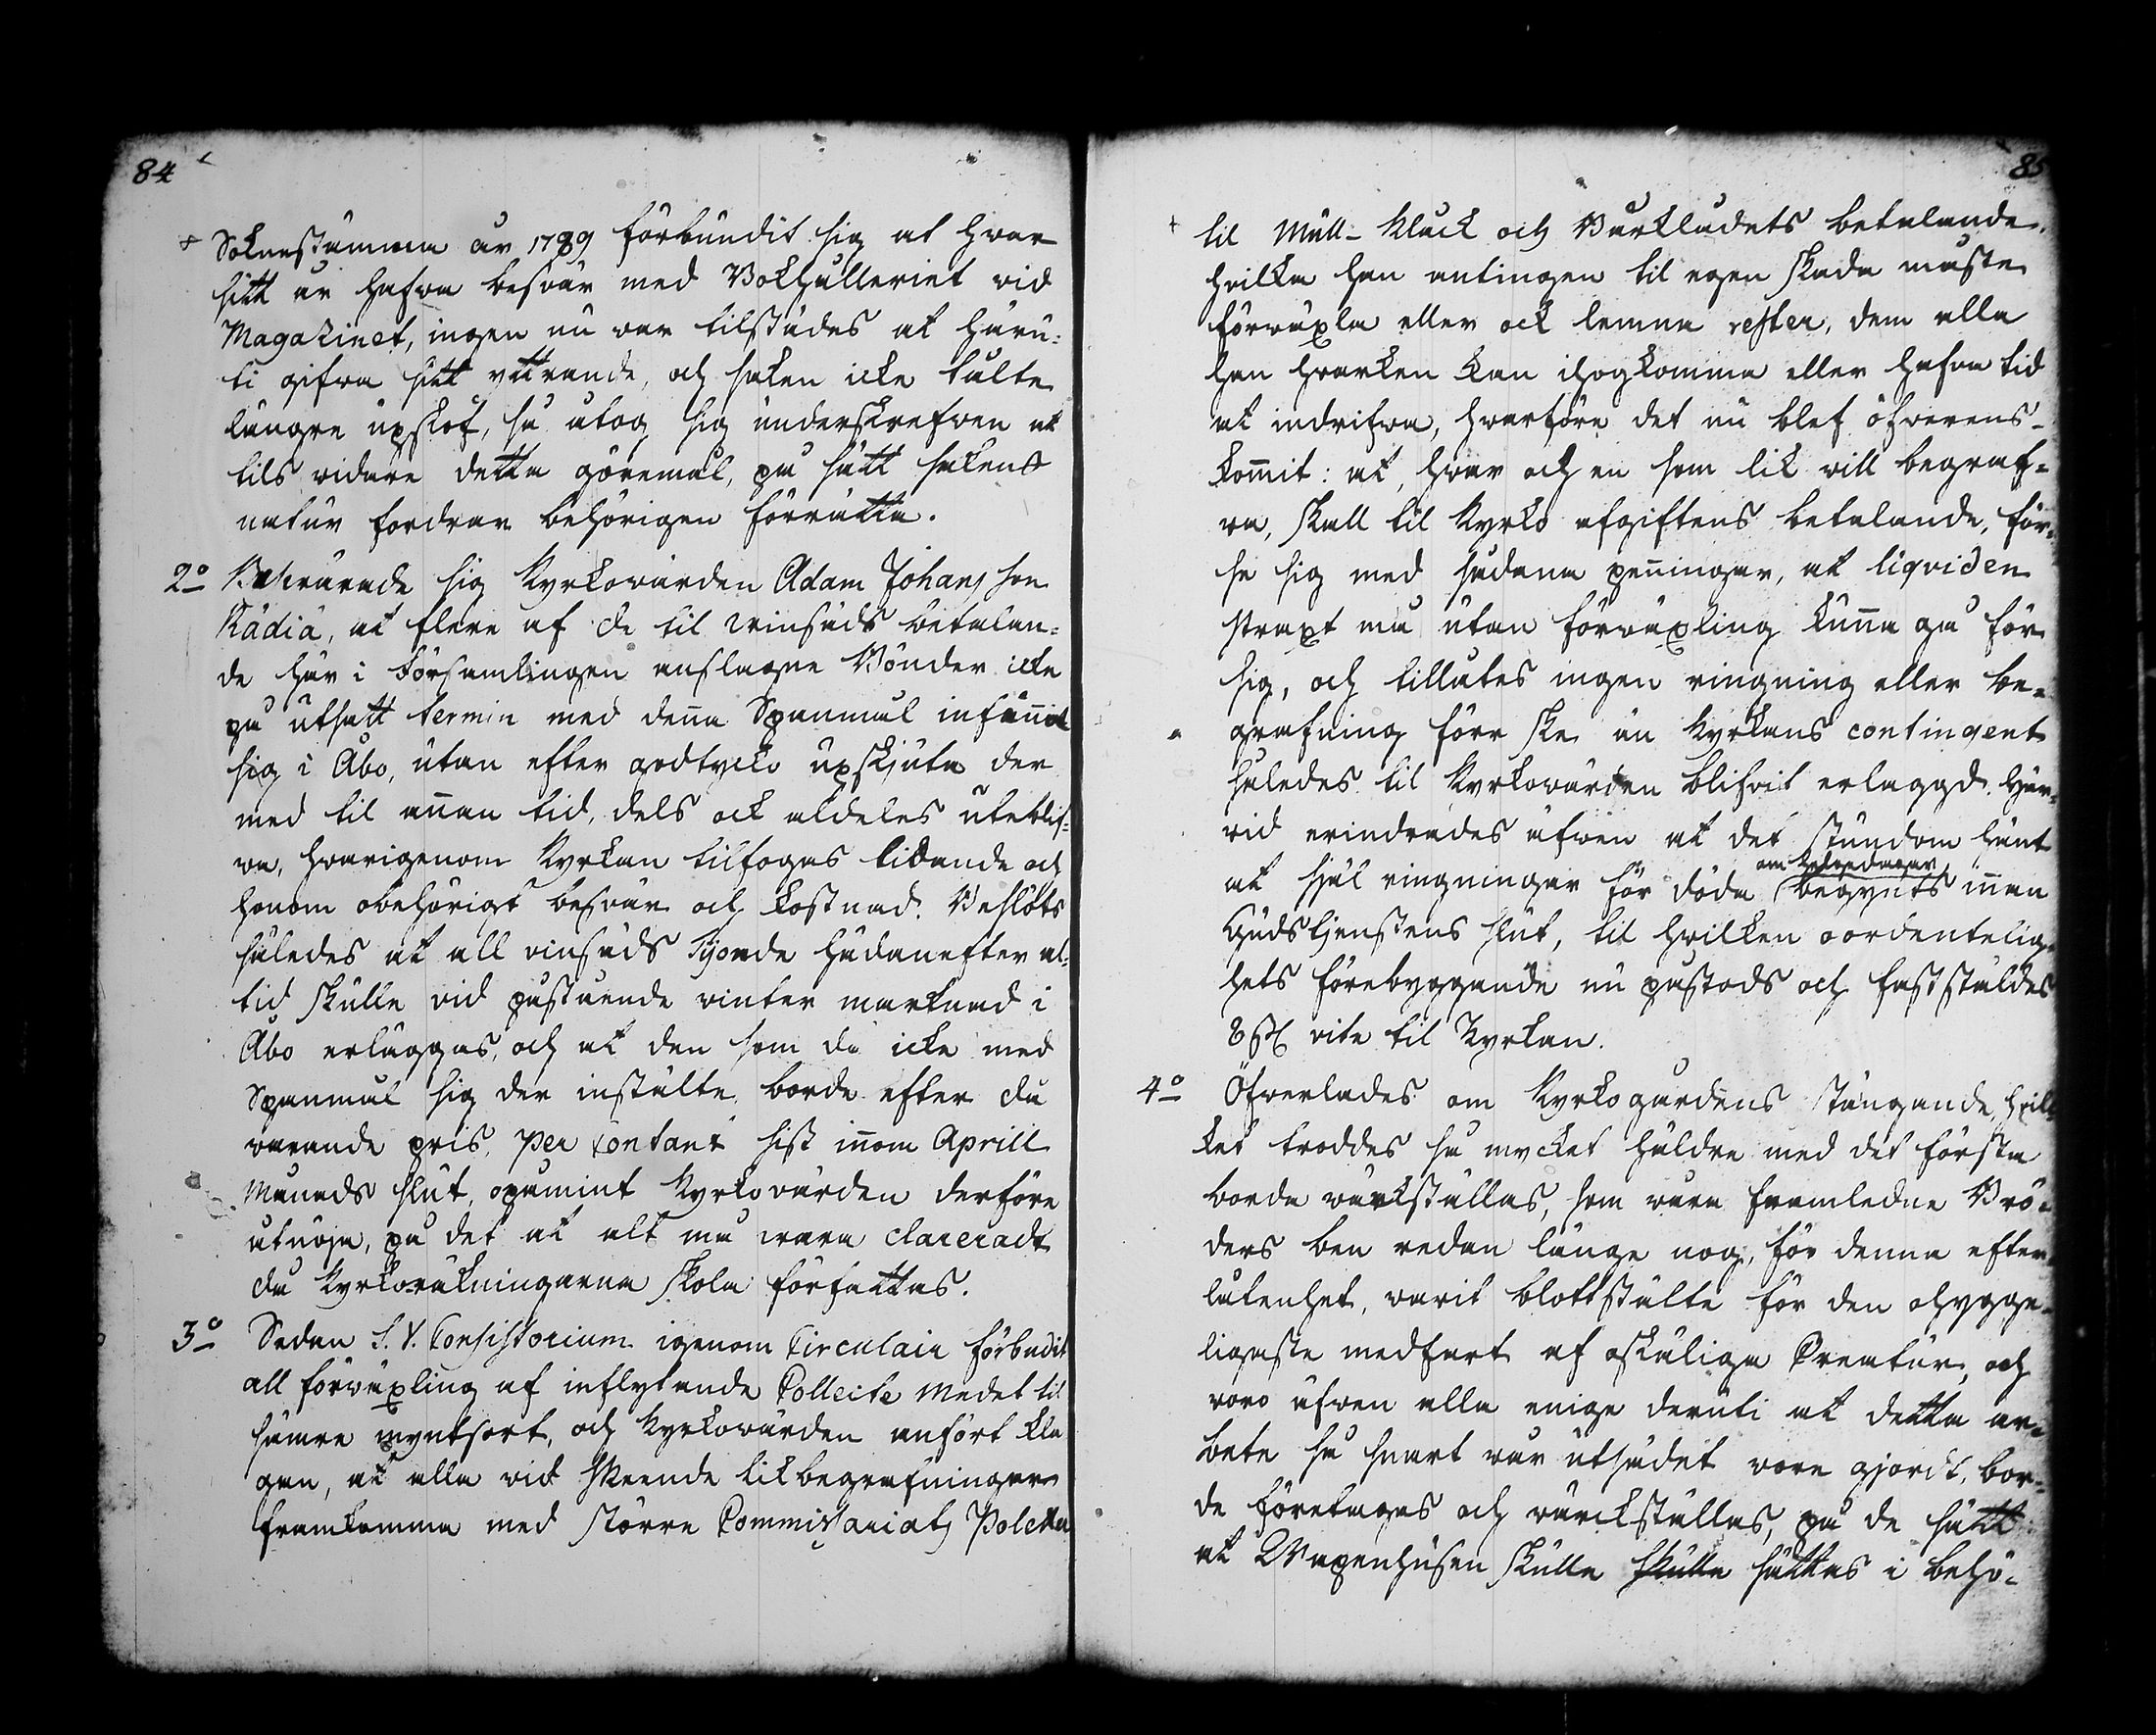 84
Soknestämma år 1789 förbundit sig at hvar
sitt år hafva besvär med Bokhålleriet vid
Magazinet, ingen nu var tilstädes at häru¬
ti gifva sitt yttrande, och saken icke tålte
längre upskof, så åtog sig underskrefven at
tils vidare detta göremål, på sätt sakens
natur fordrar behörigen förrätta.
2o Beswärade sig Kyrkovärden Adam Johans son
Kädiä, at flere af de til vinsäds betalan¬
de här i Församlingen anslagne Bönder icke
på utsatt termin med denna Spanmål infunnit
sig i Åbo, utan efter godtycko upskjuta der
med til annan tid, dels ock aldeles uteblif¬
va, hvarigenom Kyrkan tilfogas lidande och
honom obehörigt besvär och kostnad. Beslöts
således at all vinsäds Tijonde hädanefter al¬
tid skulle vid påstående vinter marknad i
Åbo erläggas, och at den som då icke med
Spanmål sig der instälte, borde efter då
varande pris, per contant sist innom Aprill
Månads slut, opåmint Kyrkovärden derföre
utnöja, på det at alt må vara clareradt
då Kyrkoräkningarna skola författas.
3o Sedan S. V. Consistorium igenom Circulair förbudit
all förväxling af inflytande Collecte Medel til
sämre myntsort, och Kyrkovärden anfört kla
gan, at alla vid skeende likbegrafningar
framkomma med större Commissariats Poletter
85
til Mull- Kläck och Bårklädets betalande,
hvilka han antingen til egen skada måste
förväxla eller ock lemna rester, dem alla
han hvarken kan ihogkomma eller hafva tid
at indrifva, hvarföre det nu blef öfverens¬
kommit: at, hvar och en som lik vill begraf¬
va, skall til Kyrko afgiftens betalande, för¬
se sig med sådana penningar, at liqviden
straxt må utan förväxling kunna gå för
sig, och tillåtes ingen ringning eller be¬
grafning förr ske än Kyrkans contingent
således til Kyrkovärden blifvit erlaggd. Här¬
vid erindrades äfven at det stundom händt
at själ ringningar för döda om helgedagar begynts innan
Gudstjenstens slut, til hvilken oordentelig¬
hets förebyggande nu påstods och fastställdes
8 ß vite til Kyrkan.
4o Öfverlades om Kyrkogårdens stängande, hvil¬
ket troddes så mycket häldre med det första
borde wärkställas, som våra framledne Brö¬
ders ben redan länge nog, för denna efter
låtenhet, varit blottstälte för den ohygge¬
ligaste medfart af oskäliga Creatur, och
voro äfven alla enige deruti at detta ar¬
bete så snart vår utsädet vore gjordt, bor¬
de företagas och värckställas, på de sätt
at Wapenhusen skulle skulle sättas i behö¬